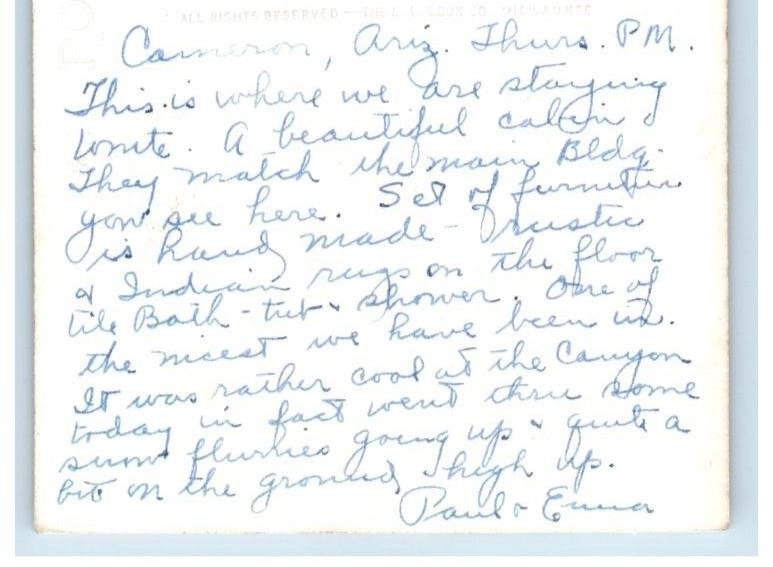 ALL RIGHTS RESERVED — THE L. L. COOK CO. MILWAUKEE
PO
Cameron, Ariz. Thurs. P.M.
This is where we are staying
tonite. A beautiful cabin &
They match the main Bldg.
you see here. Set of furniture
is hand made - rustic
& Indian rugs on the floor
tile Bath - tub & shower. One of
the nicest we have been in.
It was rather cool at the Canyon
today in fact went thru some
snow flurries going up & quite a
bit on the ground high up.
Paul & Emma